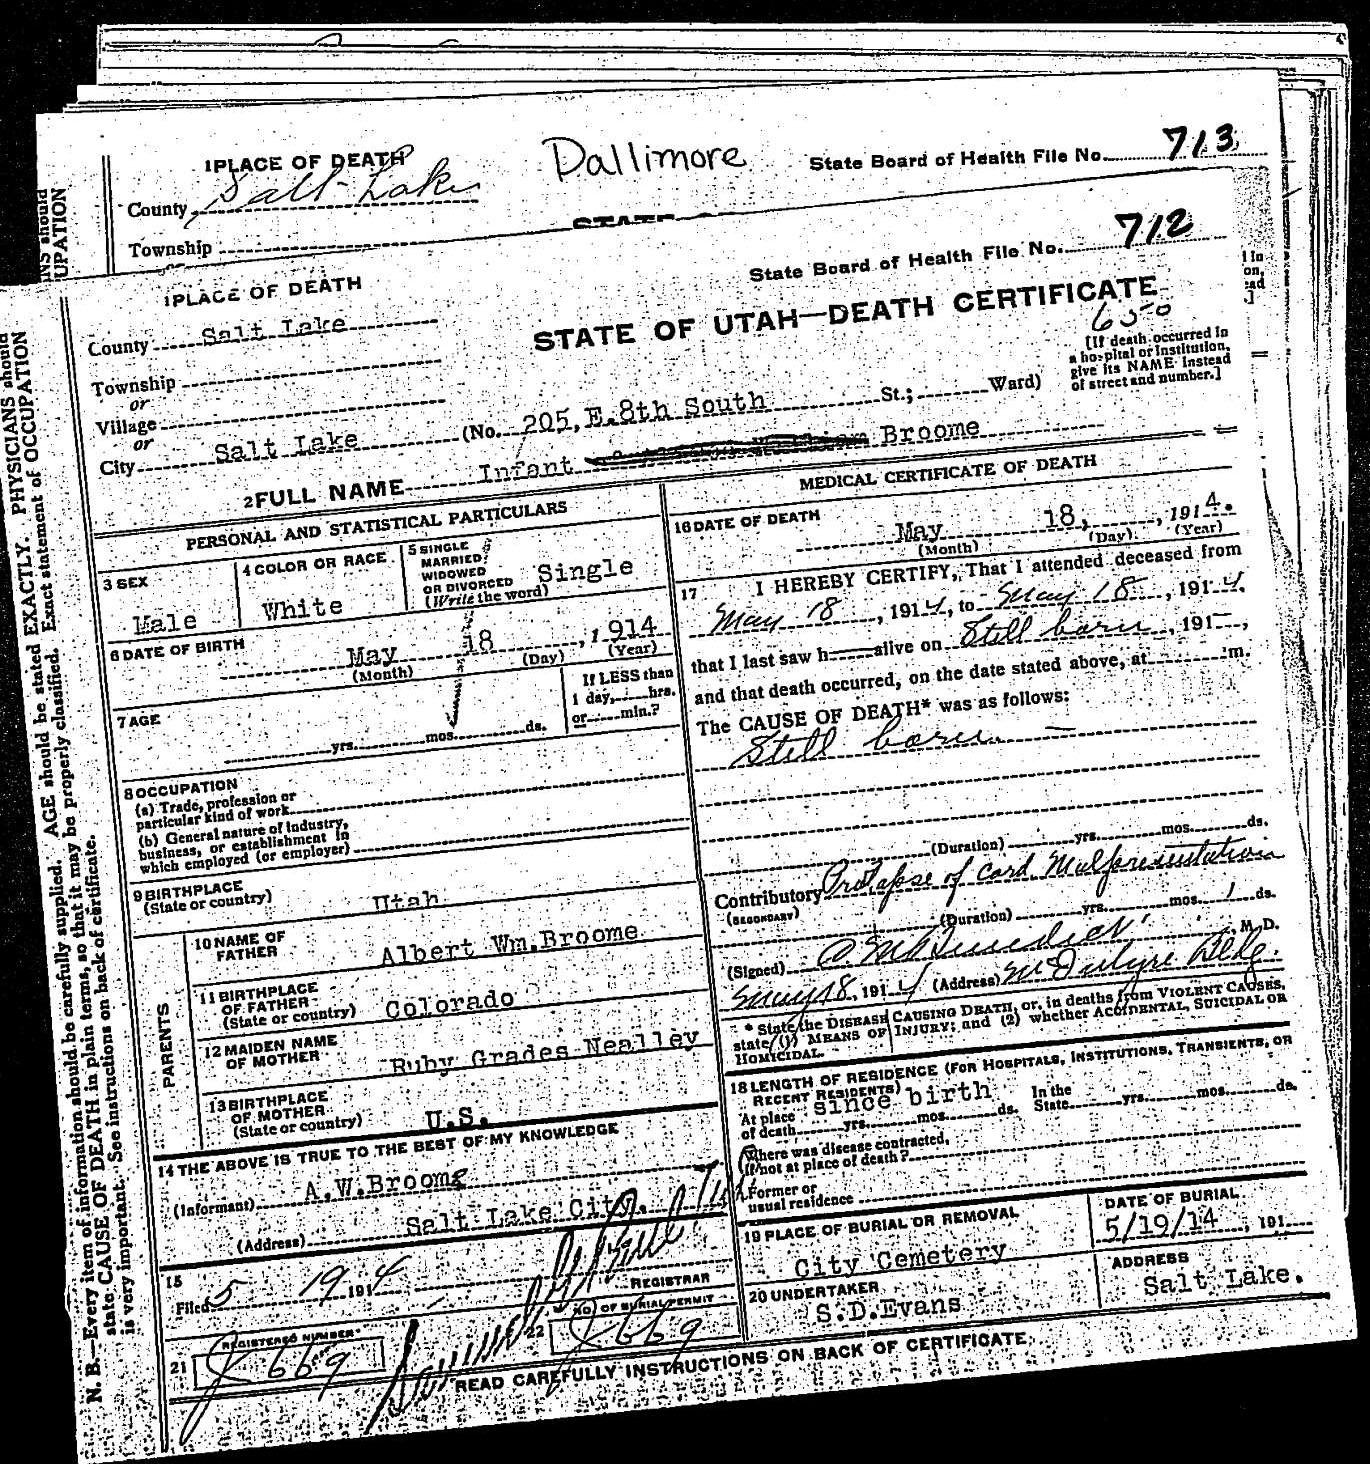 1 PLACE OF DEATH
Dallimore
State Board of Health File No. 713
County Salt Lake
Township
STATE
NS should
UPATION
1 PLACE OF DEATH
State Board of Health File No. 712
County Salt Lake
STATE OF UTAH—DEATH CERTIFICATE
650
Township
or
Village
or
City Salt Lake (No. 205, E. 8th South St.; Ward)
[If death occurred in
a hospital or institution,
give its NAME instead
of street and number.]
2 FULL NAME Infant Broome
PERSONAL AND STATISTICAL PARTICULARS
3 SEX
Male
4 COLOR OR RACE
White
5 SINGLE
MARRIED
WIDOWED
OR DIVORCED
(Write the word)
Single
6 DATE OF BIRTH
May 18, 1914
(Month) (Day) (Year)
7 AGE
yrs. mos. ds.
If LESS than
1 day, hrs.
or min.?
8 OCCUPATION
(a) Trade, profession or
particular kind of work
(b) General nature of industry,
business, or establishment in
which employed (or employer)
9 BIRTHPLACE
(State or country)
Utah
PARENTS
10 NAME OF
FATHER
Albert Wm. Broome
11 BIRTHPLACE
OF FATHER
(State or country)
Colorado
12 MAIDEN NAME
OF MOTHER
Ruby Grades Nealley
13 BIRTHPLACE
OF MOTHER
(State or country)
U.S.
14 THE ABOVE IS TRUE TO THE BEST OF MY KNOWLEDGE
(Informant) A.W.Broome
(Address) Salt Lake City.
15
Filed 5 19 1914
REGISTRAR
21 REGISTERED NUMBER
J 669
22 NO. OF BURIAL PERMIT
J 669
MEDICAL CERTIFICATE OF DEATH
16 DATE OF DEATH
May 18, 1914.
(Month) (Day) (Year)
17 I HEREBY CERTIFY, That I attended deceased from
May 18, 1914, to May 18, 1914,
that I last saw h alive on Still born, 191 ,
and that death occurred, on the date stated above, at m.
The CAUSE OF DEATH* was as follows:
Still born.
(Duration) yrs. mos. ds.
Contributory Prolapse of cord Malpresentation
(SECONDARY)
(Duration) yrs. mos. 1 ds.
(Signed) M. D.
May 18, 1914 (Address) McIntyre Bldg.
* State the DISEASE CAUSING DEATH, or, in deaths from VIOLENT CAUSES,
state (1) MEANS OF INJURY; and (2) whether ACCIDENTAL, SUICIDAL OR
HOMICIDAL.
18 LENGTH OF RESIDENCE (FOR HOSPITALS, INSTITUTIONS, TRANSIENTS, OR
RECENT RESIDENTS)
At place since birth In the
of death yrs. mos. ds. State yrs. mos. ds.
Where was disease contracted,
if not at place of death?
Former or
usual residence
19 PLACE OF BURIAL OR REMOVAL
City Cemetery
DATE OF BURIAL
5/19/14, 191
20 UNDERTAKER
S.D.Evans
ADDRESS
Salt Lake.
READ CAREFULLY INSTRUCTIONS ON BACK OF CERTIFICATE.
N. B.—Every item of information should be carefully supplied. AGE should be stated EXACTLY. PHYSICIANS should
state CAUSE OF DEATH in plain terms, so that it may be properly classified. Exact statement of OCCUPATION
is very important. See instructions on back of certificate.